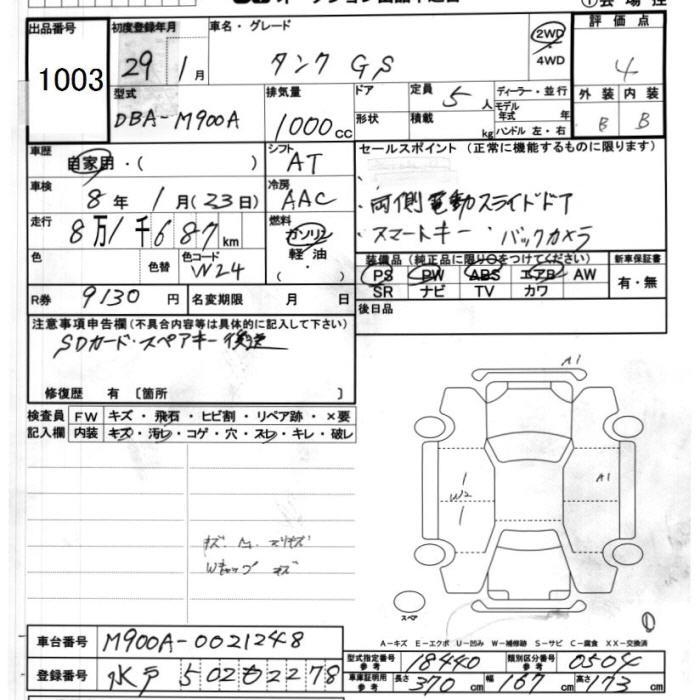 出品番号 初度登録年月 車名・グレード 2WD 評価点
1003 29年 1月 タンク GS 4WD 4
型式 排気量 ドア 定員 5人 ディーラー・並行 外装 内装
DBA-M900A 1000cc 形状 積載 kg モデル年式 年 B B
ハンドル 左・右
車歴 自家用・( ) シフト AT セールスポイント (正常に機能するものに限ります)
車検 8年 1月(23日) 冷房 AAC ・両側電動スライドドア
走行 8万1千687km 燃料 ガソリン ・スマートキー ・バックカメラ
色 色替 色コード W24 軽油・( ) 装備品(純正品に限り○をつけてください) 新車保証書
PS PW ABS エアB AW 有・無
R券 9130円 名変期限 月 日 SR ナビ TV カワ
注意事項申告欄(不具合内容等は具体的に記入して下さい) 後日品
SDカード・スペアキー後送
修復歴 有〔箇所 〕
検査員 FW キズ・飛石・ヒビ割・リペア跡・×要
記入欄 内装 キズ・汚レ・コゲ・穴・スレ・キレ・破レ
A1
W2 A1
Wキャップ キズ
スペア
A-キズ E-エクボ U-凹み W-補修跡 S-サビ C-腐食 XX-交換済
車台番号 M900A-0021248
型式指定番号 参考 18440 類別区分番号 参考 0504
登録番号 水戸 502 も 2278
車庫証明用 参考 長さ 370cm 幅 167cm 高さ 173cm